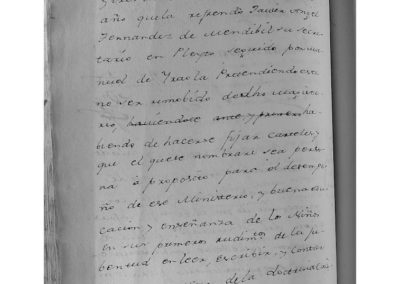 año que la refrendo Xavier Angel
Fernandez de Mendibil su secre
tario en Pleyto seguido por Ma
nuel de Yraola Pretendiendo este
no ser removido de dho magiste
rio, haviendose ante y primero ha
biendo de hacerse fijar carteles, y
que el que se nombrare sea perso
na á proposito para el desempe
ño de ese Ministerio, y buena edu
cacion y enseñanza de los Niños
en sus primeros rudimtos de la ju
bentud en leer, escribir, y contar
de la doctrina